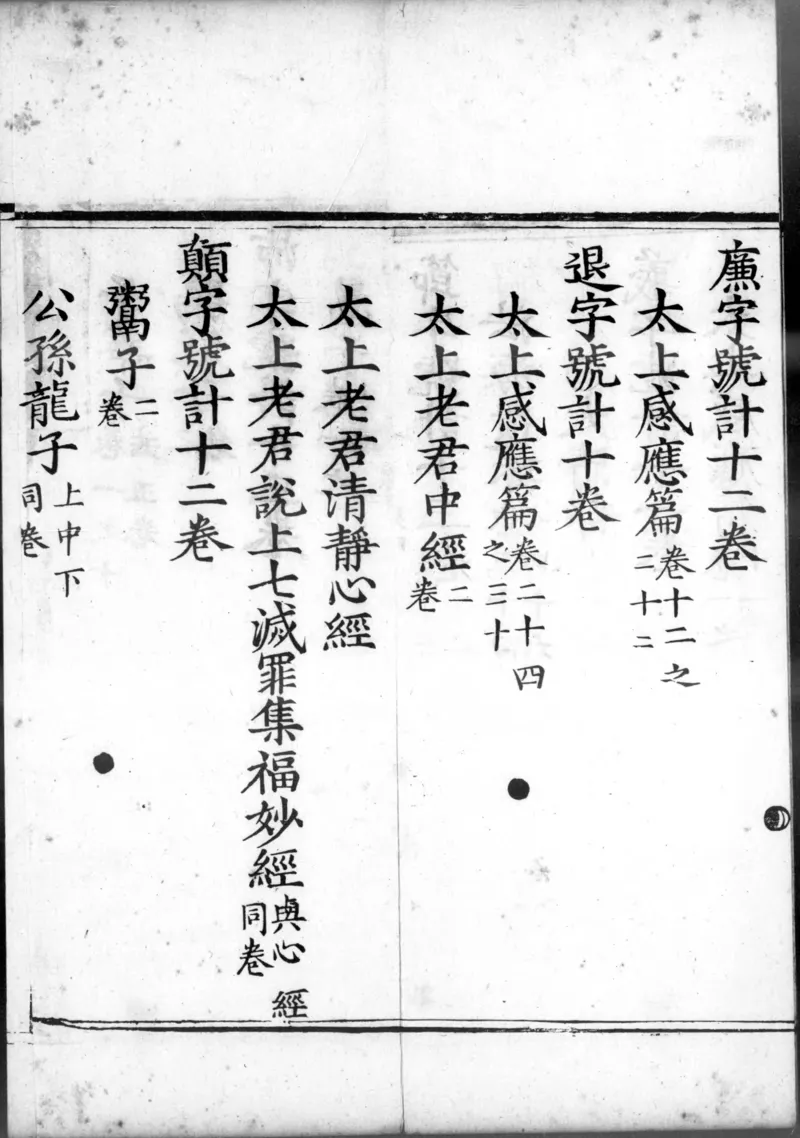 廉字號計十二卷
太上感應篇卷十二之二十二
退字號計十卷
太上感應篇卷二十四之三十
太上老君中經二卷
太上老君清靜心經
太上老君說上七滅罪集福妙經與心經同卷
顛字號計十二卷
鬻子二卷
公孫龍子上中下同卷